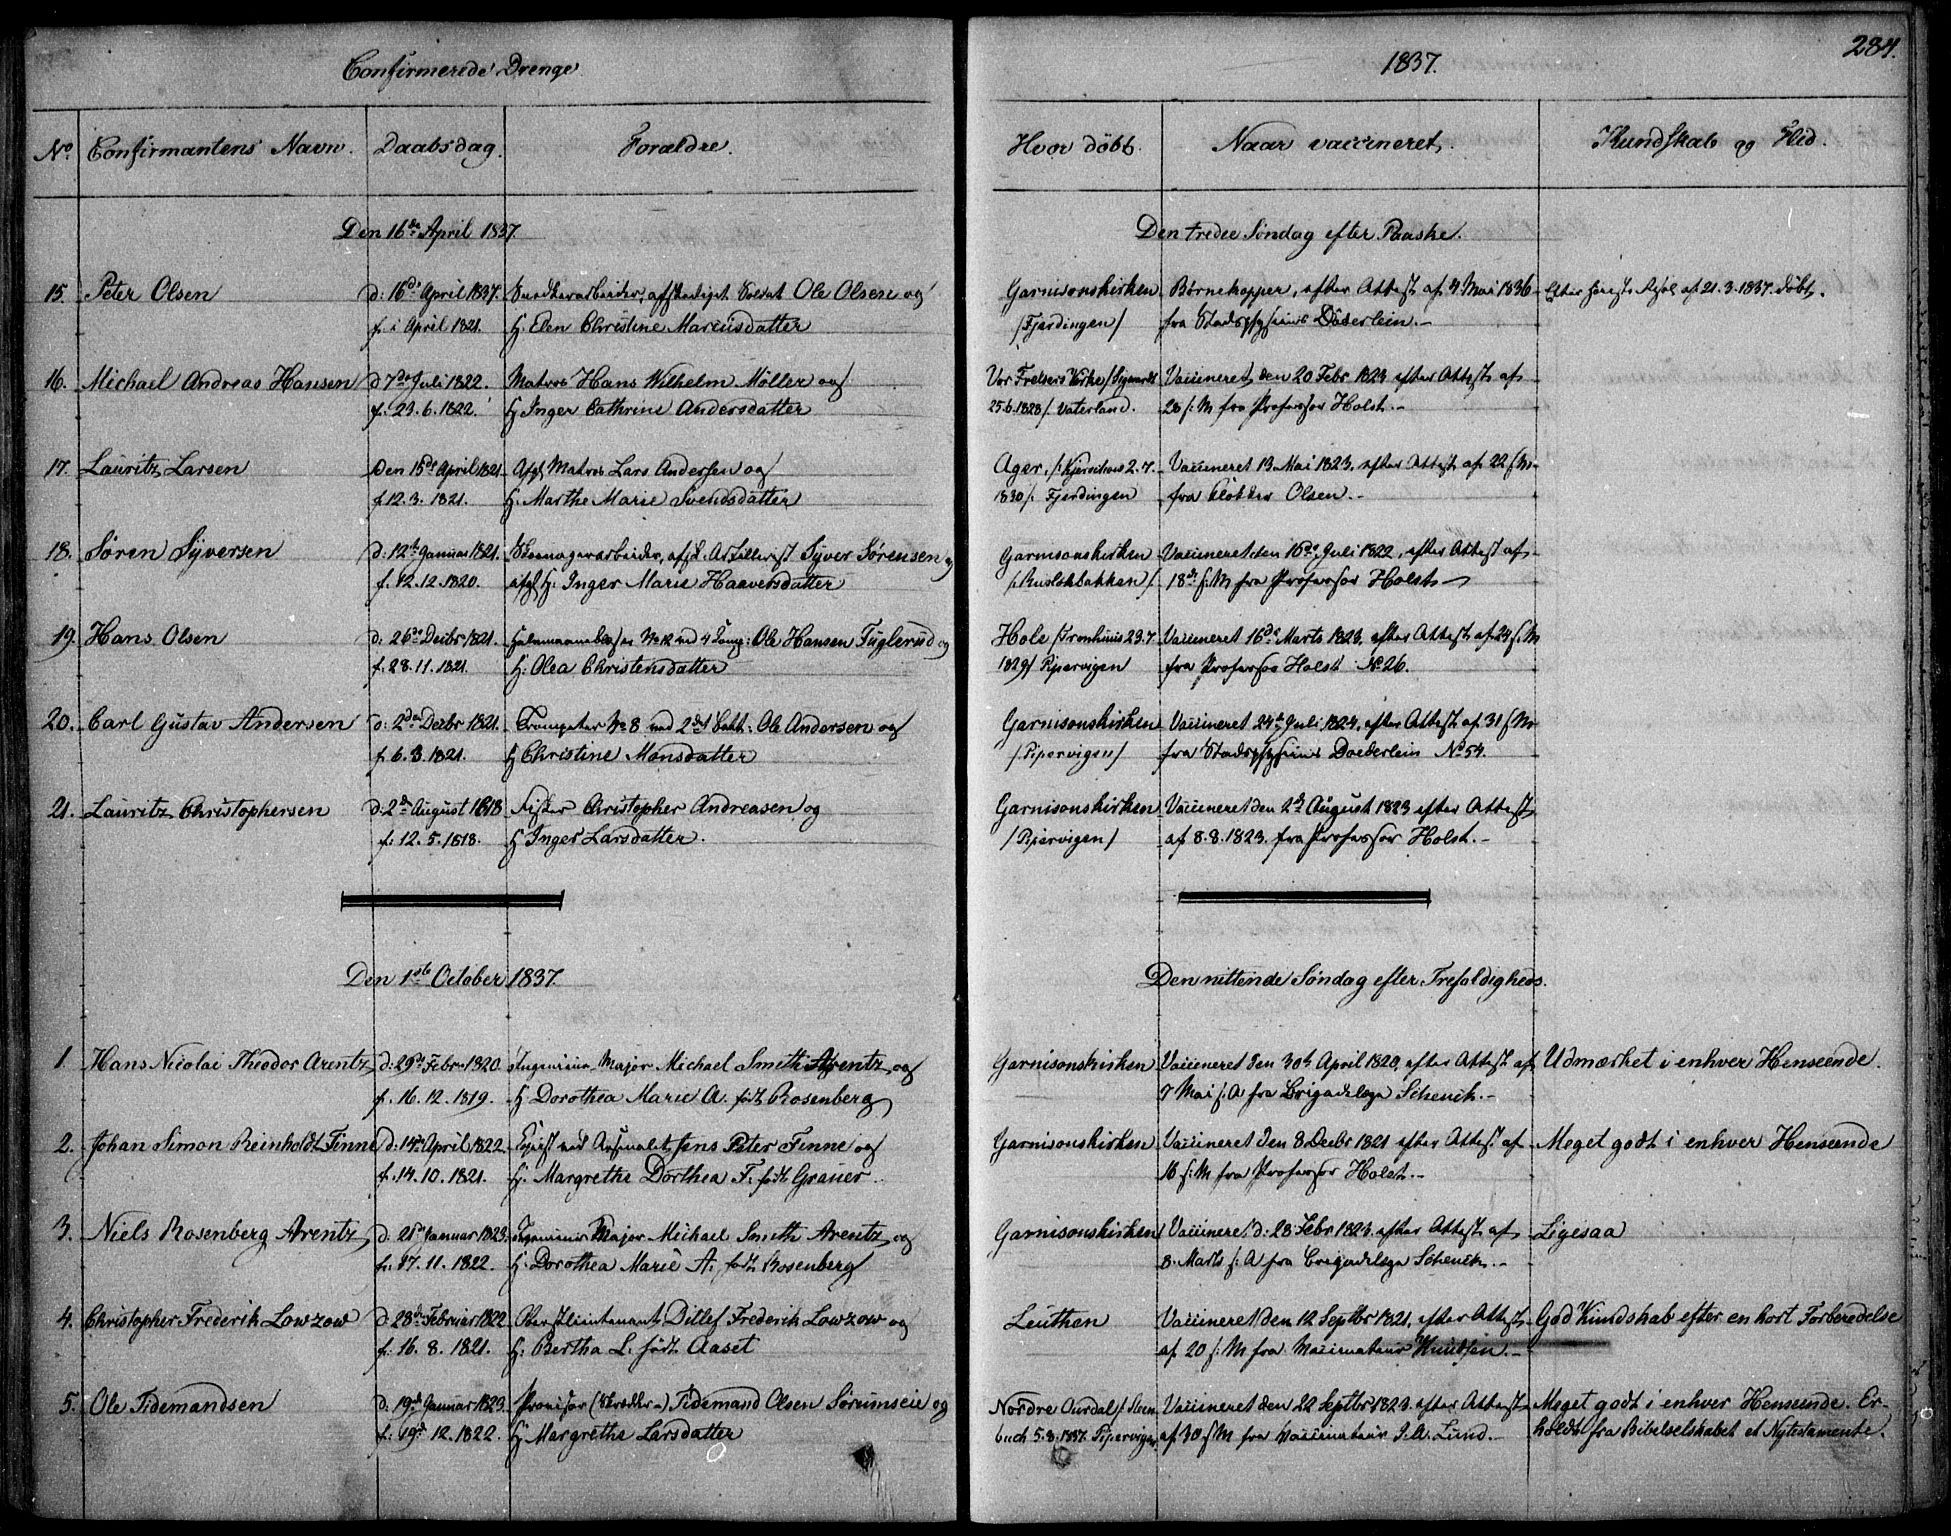 Confirmerede Drenge
1837.
284.
No Confirmantens Navn. Daabsdag. Forældre. Hvor döbt. Naar vaccineret. Kundskab og Flid.
Den 16de April 1837. Den tredie Søndag efter Paaske.
15. Peter Olsen d: 16de April 1837. afskediget Soldat Ole Olsen og Garnisonskirken Børnekopper, efter Attest af 4 Mai 1836 Efter af 21.3.1837. döbt.
f. i April 1821. H: Elen Christine Mariusdatter /Fjerdingen/ fra Stadsphysicus Döderlein.-
16. Michael Andreas Hansen d 7de Juli 1822. Matros Hans Wilhelm Möller og Vor Frelsers Kirke / Vaccineret den 20 Febr 1823 efter Attest af
f. 23.6.1822. H Inger Cathrine Andersdatter 25.6.1828/. Vaterland. 28 s:M fra Professor Holst.-
17. Lauritz Larsen Den 15de April 1821. Afg. Matros Lars Andersen og Ager, / 2.7. Vaccineret 13 Mai 1823. efter Attest af 22 s:M
f 12.3.1821. H: Marthe Marie Svendsdatter 1830/: Fjerdingen fra Klokker Olsen.-
18. Søren Syversen d: 12te Januar 1821. Artillerist Syver Sørensen og Garnisonskirken Vaccineret den 16de Juli 1822, efter Attest af
f. 12.12.1820. afg H: Inger Marie Haaversdatter /:Ruslökbakken/ 18de s:M fra Professor Holst
19. Hans Olsen d: 26de Decbr 1821. No 12 ved 4 Comp: Ole Hansen Fuglerud og Hole / 23.7 Vaccineret 16de Marts 1823, efter Attest af 24 s:M
f. 28.11.1821. H: Olea Christensdatter 1829/ Pipervigen fra Professor Holst No 26.
20. Carl Gustav Andersen d: 2den Decbr 1821. Trompeter No 8 ved 2det Ole Andersen og Garnisonskirken Vaccineret 24de Juli 1824, efter Attest af 31 s:M
f. 6.3.1821. H Christine Monsdatter /:Pipervigen/ fra Stadsphysicus Doederlein No 54.
21. Lauritz Christophersen d: 2den August 1818 Fisker Christopher Andreasen og Garnisonskirken Vaccineret den 2de August 1823 efter Attest
f: 12.5.1818. H Inger Larsdatter. /Pipervigen/ af 8.8.1823. fra Professor Holst.-
Den 1ste October 1837. Den nittende Søndag efter Trefoldigheds.
1. Hans Nicolai Theodor Arentz d: 29de Febr 1820. Ingenieur Major Michael Smith Arentz og Garnisonskirken Vaccineret den 30te April 1820, efter Attest af Udmærket i enhver Henseende.
f. 16.12.1819. H Dorothea Marie A. født Rosenberg 7 Mai s:A fra Brigadelæge Schenck.-
2. Johan Simon Reinholdt Finne d: 14de April 1822. Copist ved Arsenalet Jens Peter Finne og Garnisonskirken Vaccineret den 8 Decbr 1821 efter Attest af Meget godt i enhver Henseende
f. 14.10.1821. H: Margrethe Dorthea F. født Graner. 16 s:M fra Professor Holst.-
3. Niels Rosenberg Arentz d. 21de Januar 1823. Ingenieur Major Michael Smith Arentz og Garnisonskirken Vaccineret d: 28 Febr 1823 efter Attest af Ligesaa
f. 17.11.1822. H: Dorothea Marie A. født Rosenberg 8. Marts s:A fra Brigadelæge Schenck.-
4. Christopher Frederik Lowzow d. 28de Februar 1822 Oberstlieutenant Ditlef Frederik Lowzow og Leuthen Vaccineret den 12 Septbr 1821, efter Attest God Kundskab efter en kort Forberedelse
f. 16.8.1821. H: Bertha L. født Aaset af 20 s:M fra Vaccinateur Knudsen.-
5. Ole Tidemandsen d. 19de Januar 1823. Provisor Tidemand Olsen Sörumseie og Nordre Ourdal / Steen- Vaccineret den 22 Septbr 1823. efter Attest Meget godt i enhver Henseende. Er-
f. 19de 12.1822. H Margrethe Larsdatter buch 5.8.1837. Pipervigen af 30 s:M fra Vaccinateur J. A. Lund.- holdt fra Bibelselskabet et Nytestamente.